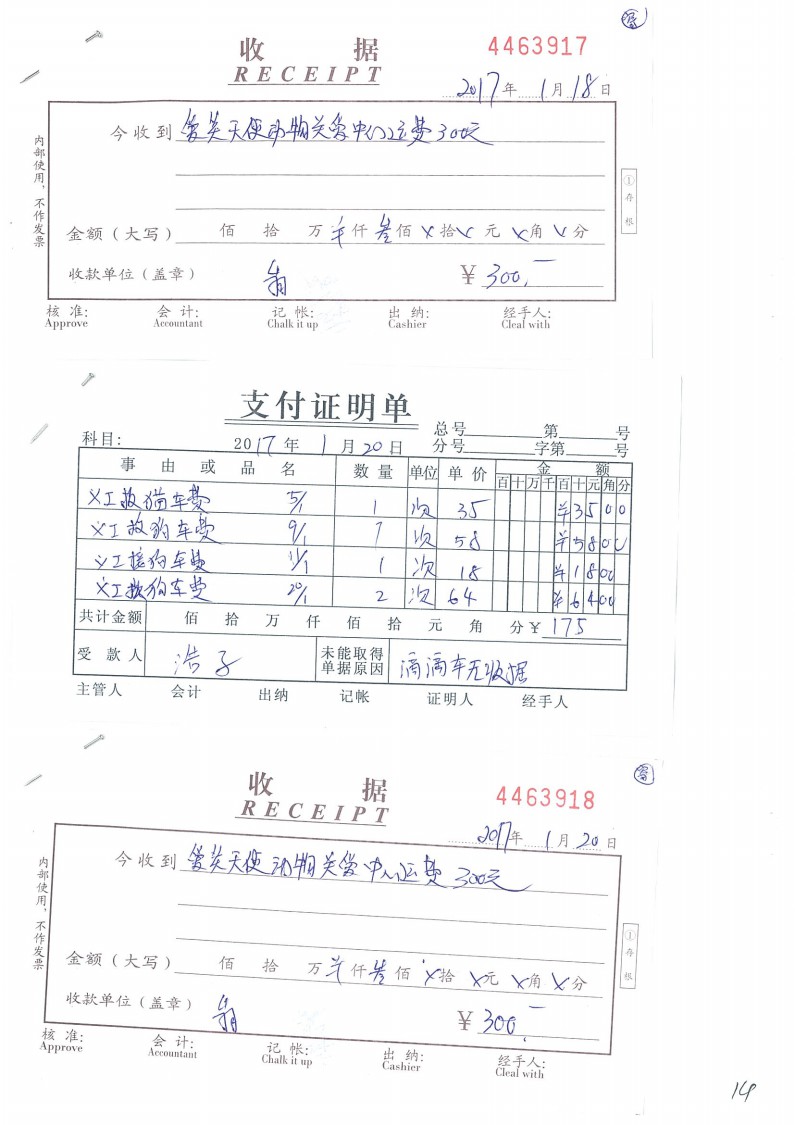 收 据
RECEIPT
4463917
2017年 1月 18日
今收到 爱芙天使动物关爱中心运费300元
金额（大写） 佰 拾 万 仟 叁佰 ×拾 × 元 ×角 ×分
收款单位（盖章） ¥ 300.—
内部使用，不作发票
①存根
核 准: 会 计: 记 帐: 出 纳: 经手人:
Approve Accountant Chalk it up Cashier Cleal with
支付证明单
总号 第 号
科目: 2017年 1月20日 分号 字第 号
事 由 或 品 名 数 量 单位 单 价 金 额
百十万千百十元角分
义工救猫车费 5/1 1 次 35 ¥3500
义工救狗车费 9/1 1 次 58 ¥5800
义工接狗车费 11/1 1 次 18 ¥1800
义工救狗车费 20/1 2 次 64 ¥6400
共计金额 佰 拾 万 仟 佰 拾 元 角 分 ¥ 175
受 款 人 浩子 未能取得单据原因 滴滴车无收据
主管人 会计 出纳 记帐 证明人 经手人
收 据
RECEIPT
4463918
2017年 1月 20日
今收到 爱芙天使动物关爱中心运费 300元
金额（大写） 佰 拾 万 仟 叁佰 ×拾 ×元 ×角 ×分
收款单位（盖章） ¥ 300.—
内部使用，不作发票
①存根
核 准: 会 计: 记 帐: 出 纳: 经手人:
Approve Accountant Chalk it up Cashier Cleal with
14